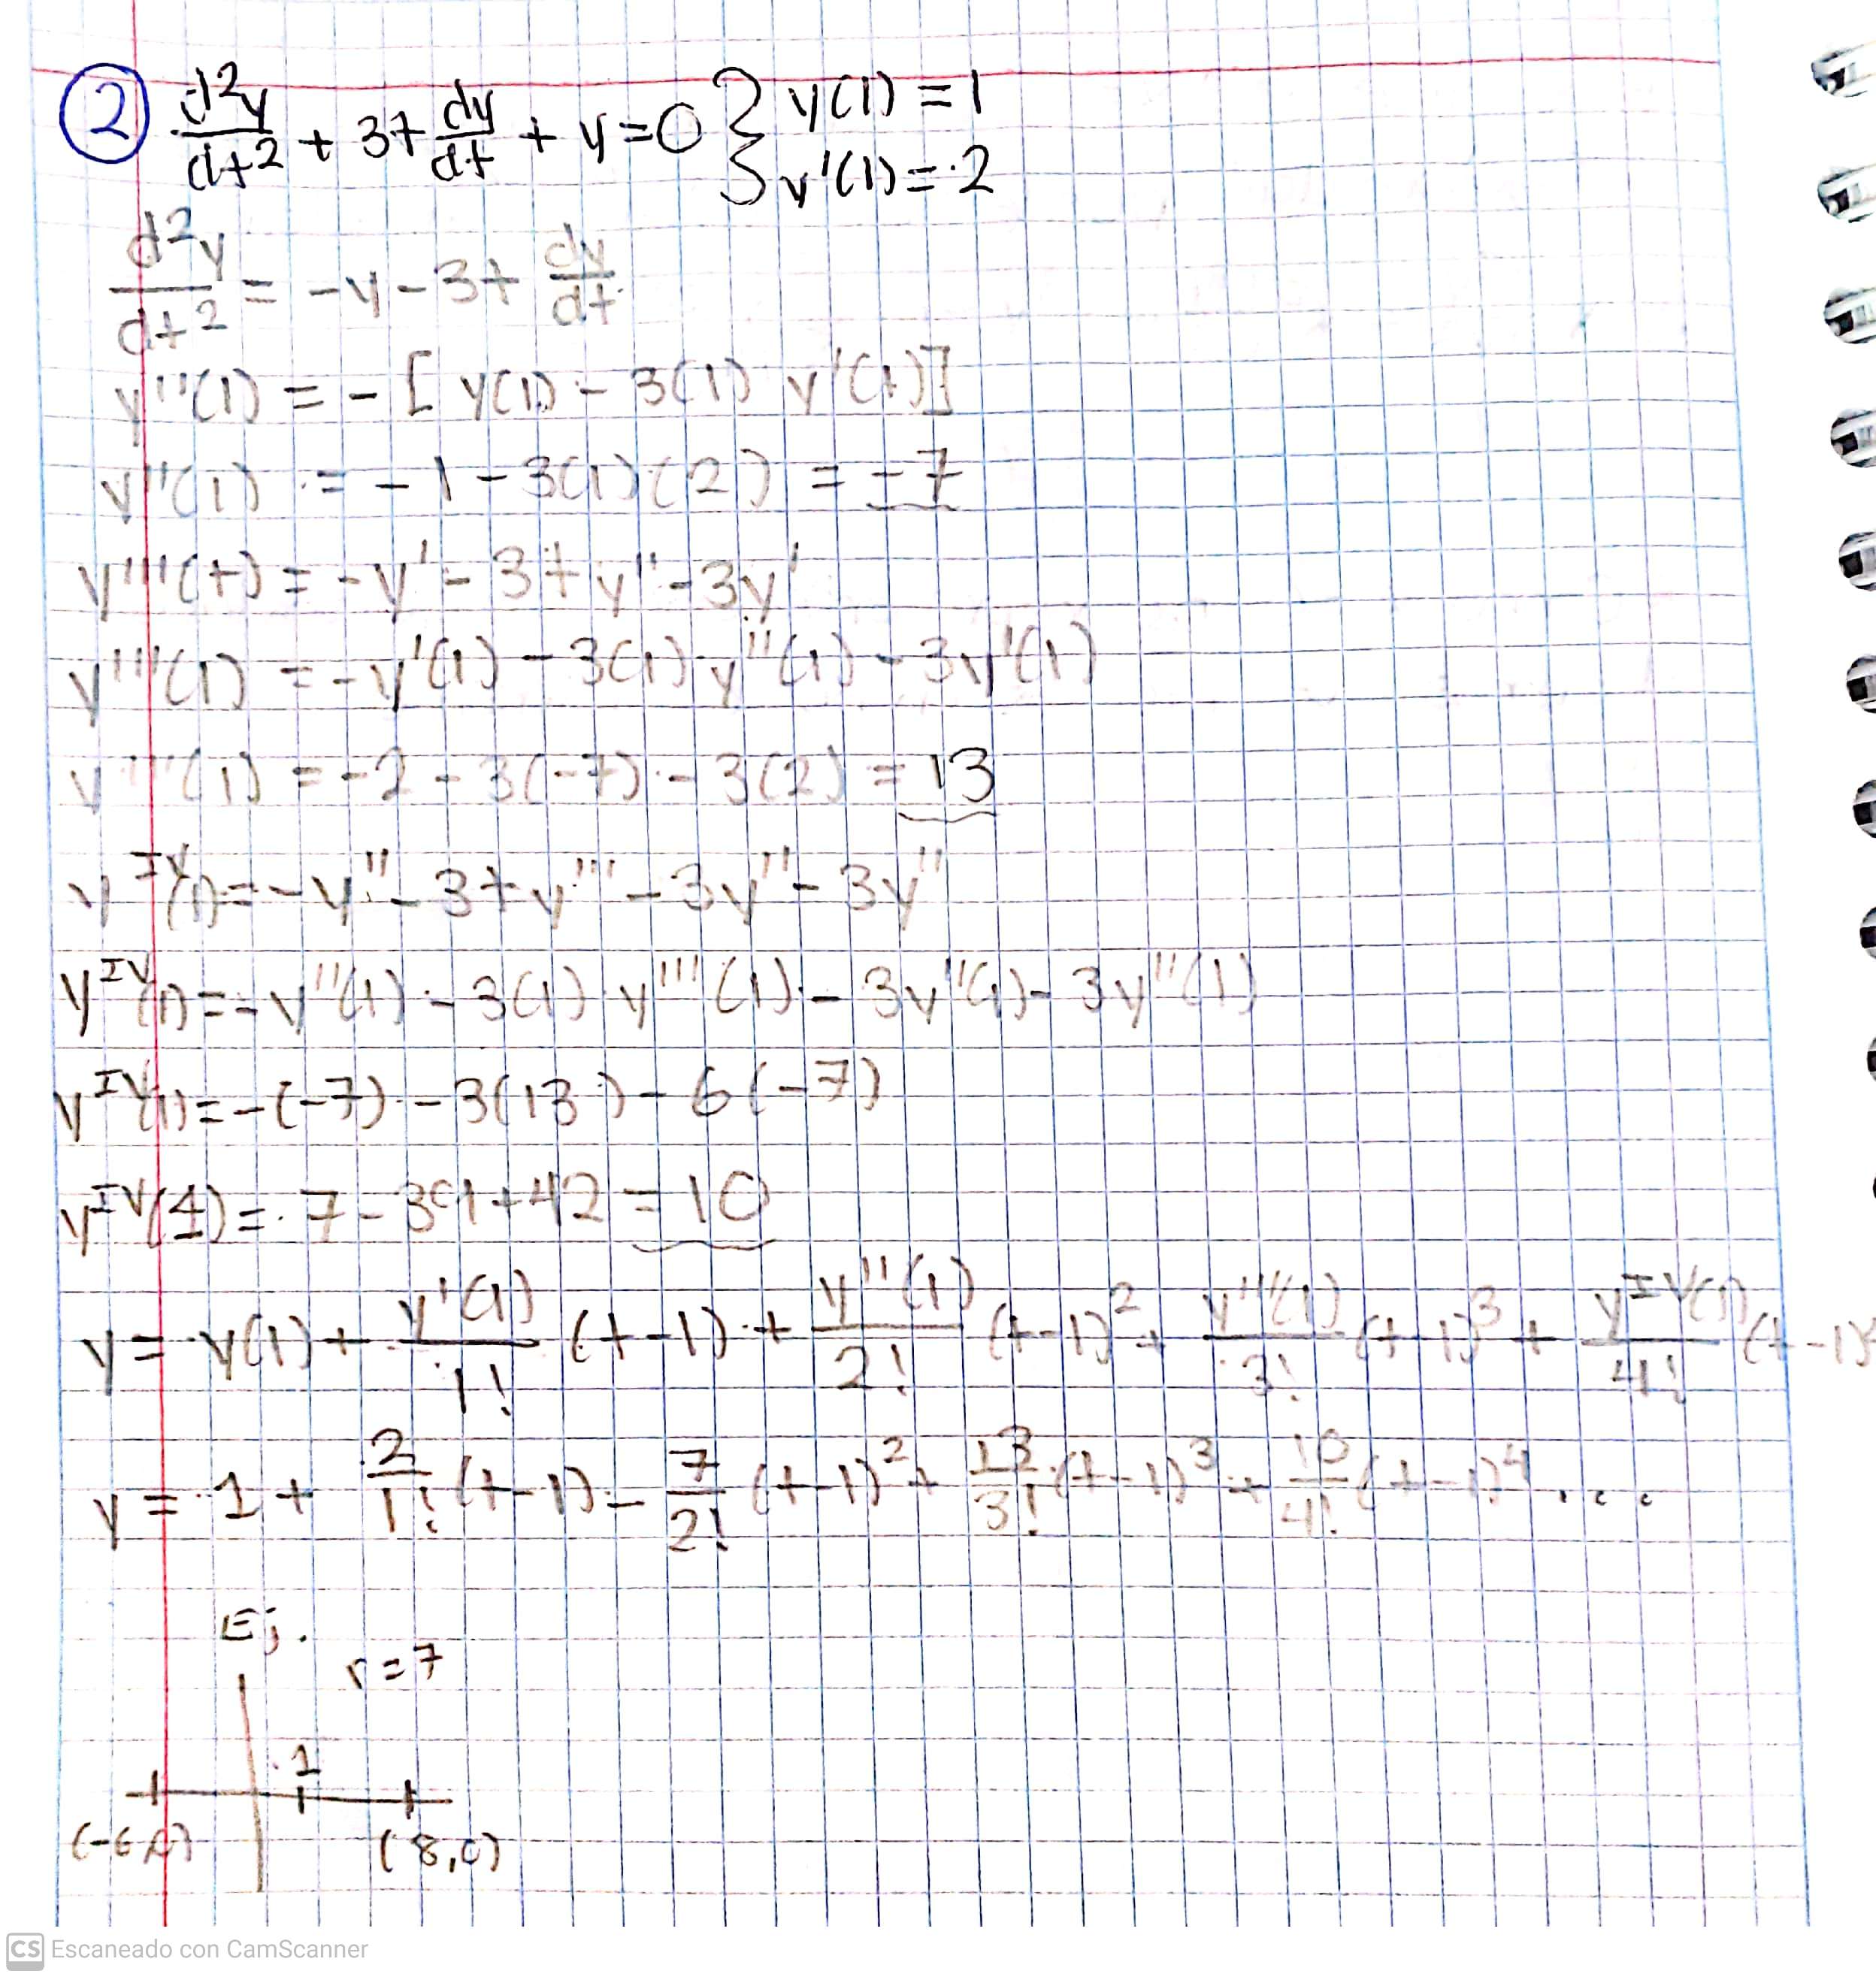 2 d²y/dt² + 3t dy/dt + y = 0 } y(1) = 1
y'(1) = 2
d²y/dt² = -y - 3t dy/dt
y''(1) = -[y(1) - 3(1) y'(1)]
y''(1) = -1 - 3(1)(2) = -7
y'''(t) = -y' - 3ty'' - 3y'
y'''(1) = -y'(1) - 3(1) y''(1) - 3y'(1)
y'''(1) = -2 - 3(-7) - 3(2) = 13
y^IV(1) = -y'' - 3ty''' - 3y'' - 3y''
y^IV(1) = -y''(1) - 3(1) y'''(1) - 3y''(1) - 3y''(1)
y^IV(1) = -(-7) - 3(13) - 6(-7)
y^IV(1) = 7 - 39 + 42 = 10
y = y(1) + y'(1)/1! (t-1) + y''(1)/2! (t-1)² + y'''(1)/3! (t-1)³ + y^IV(1)/4! (t-1)
y = 1 + 2/1! (t-1) - 7/2! (t-1)² + 13/3! (t-1)³ + 10/4! (t-1)⁴ ...
Ej.
r=7
1
(-6,0) (8,0)
CS Escaneado con CamScanner